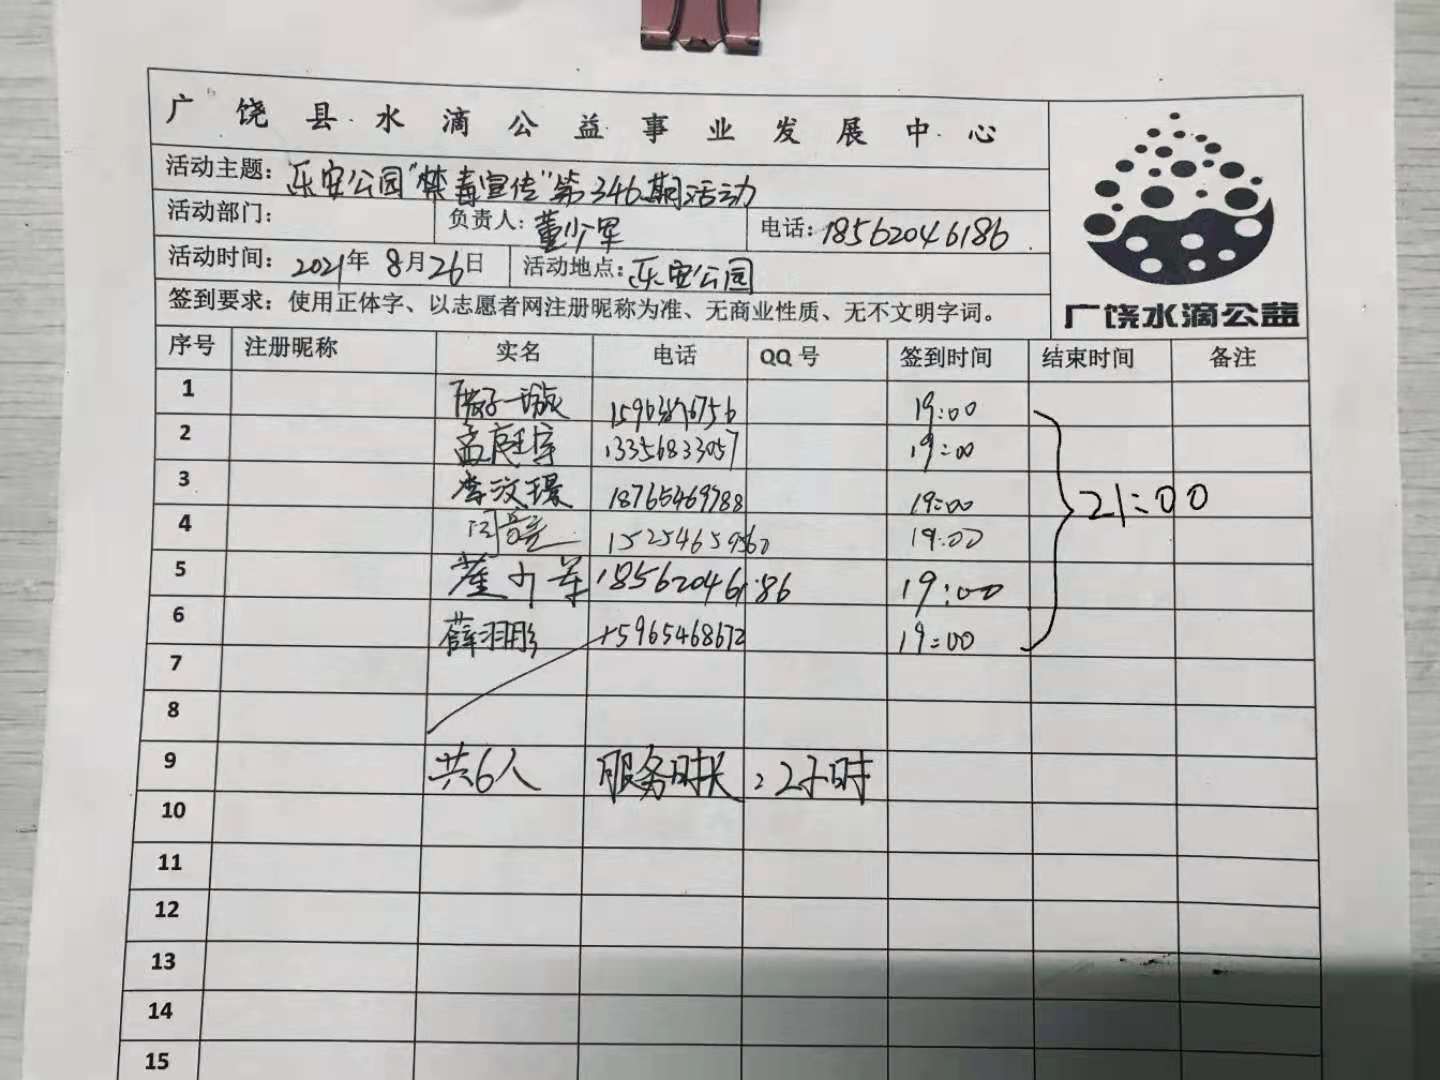 广饶县水滴公益事业发展中心
活动主题：乐安公园"禁毒宣传"第346期活动
活动部门： 负责人：董少军 电话：18562046186
活动时间：2021年8月26日 活动地点：乐安公园
签到要求：使用正体字、以志愿者网注册昵称为准、无商业性质、无不文明字词。
广饶水滴公益
序号 注册昵称 实名 电话 QQ号 签到时间 结束时间 备注
1 19:00
2 孟庭宇 13356833057 19:00
3 李汶璟 18765469788 19:00
4 19:00
5 董少军 18562046186 19:00
6 薛羽彤 15965468672 19:00
21:00
7
8
9 共6人 服务时长：2小时
10
11
12
13
14
15